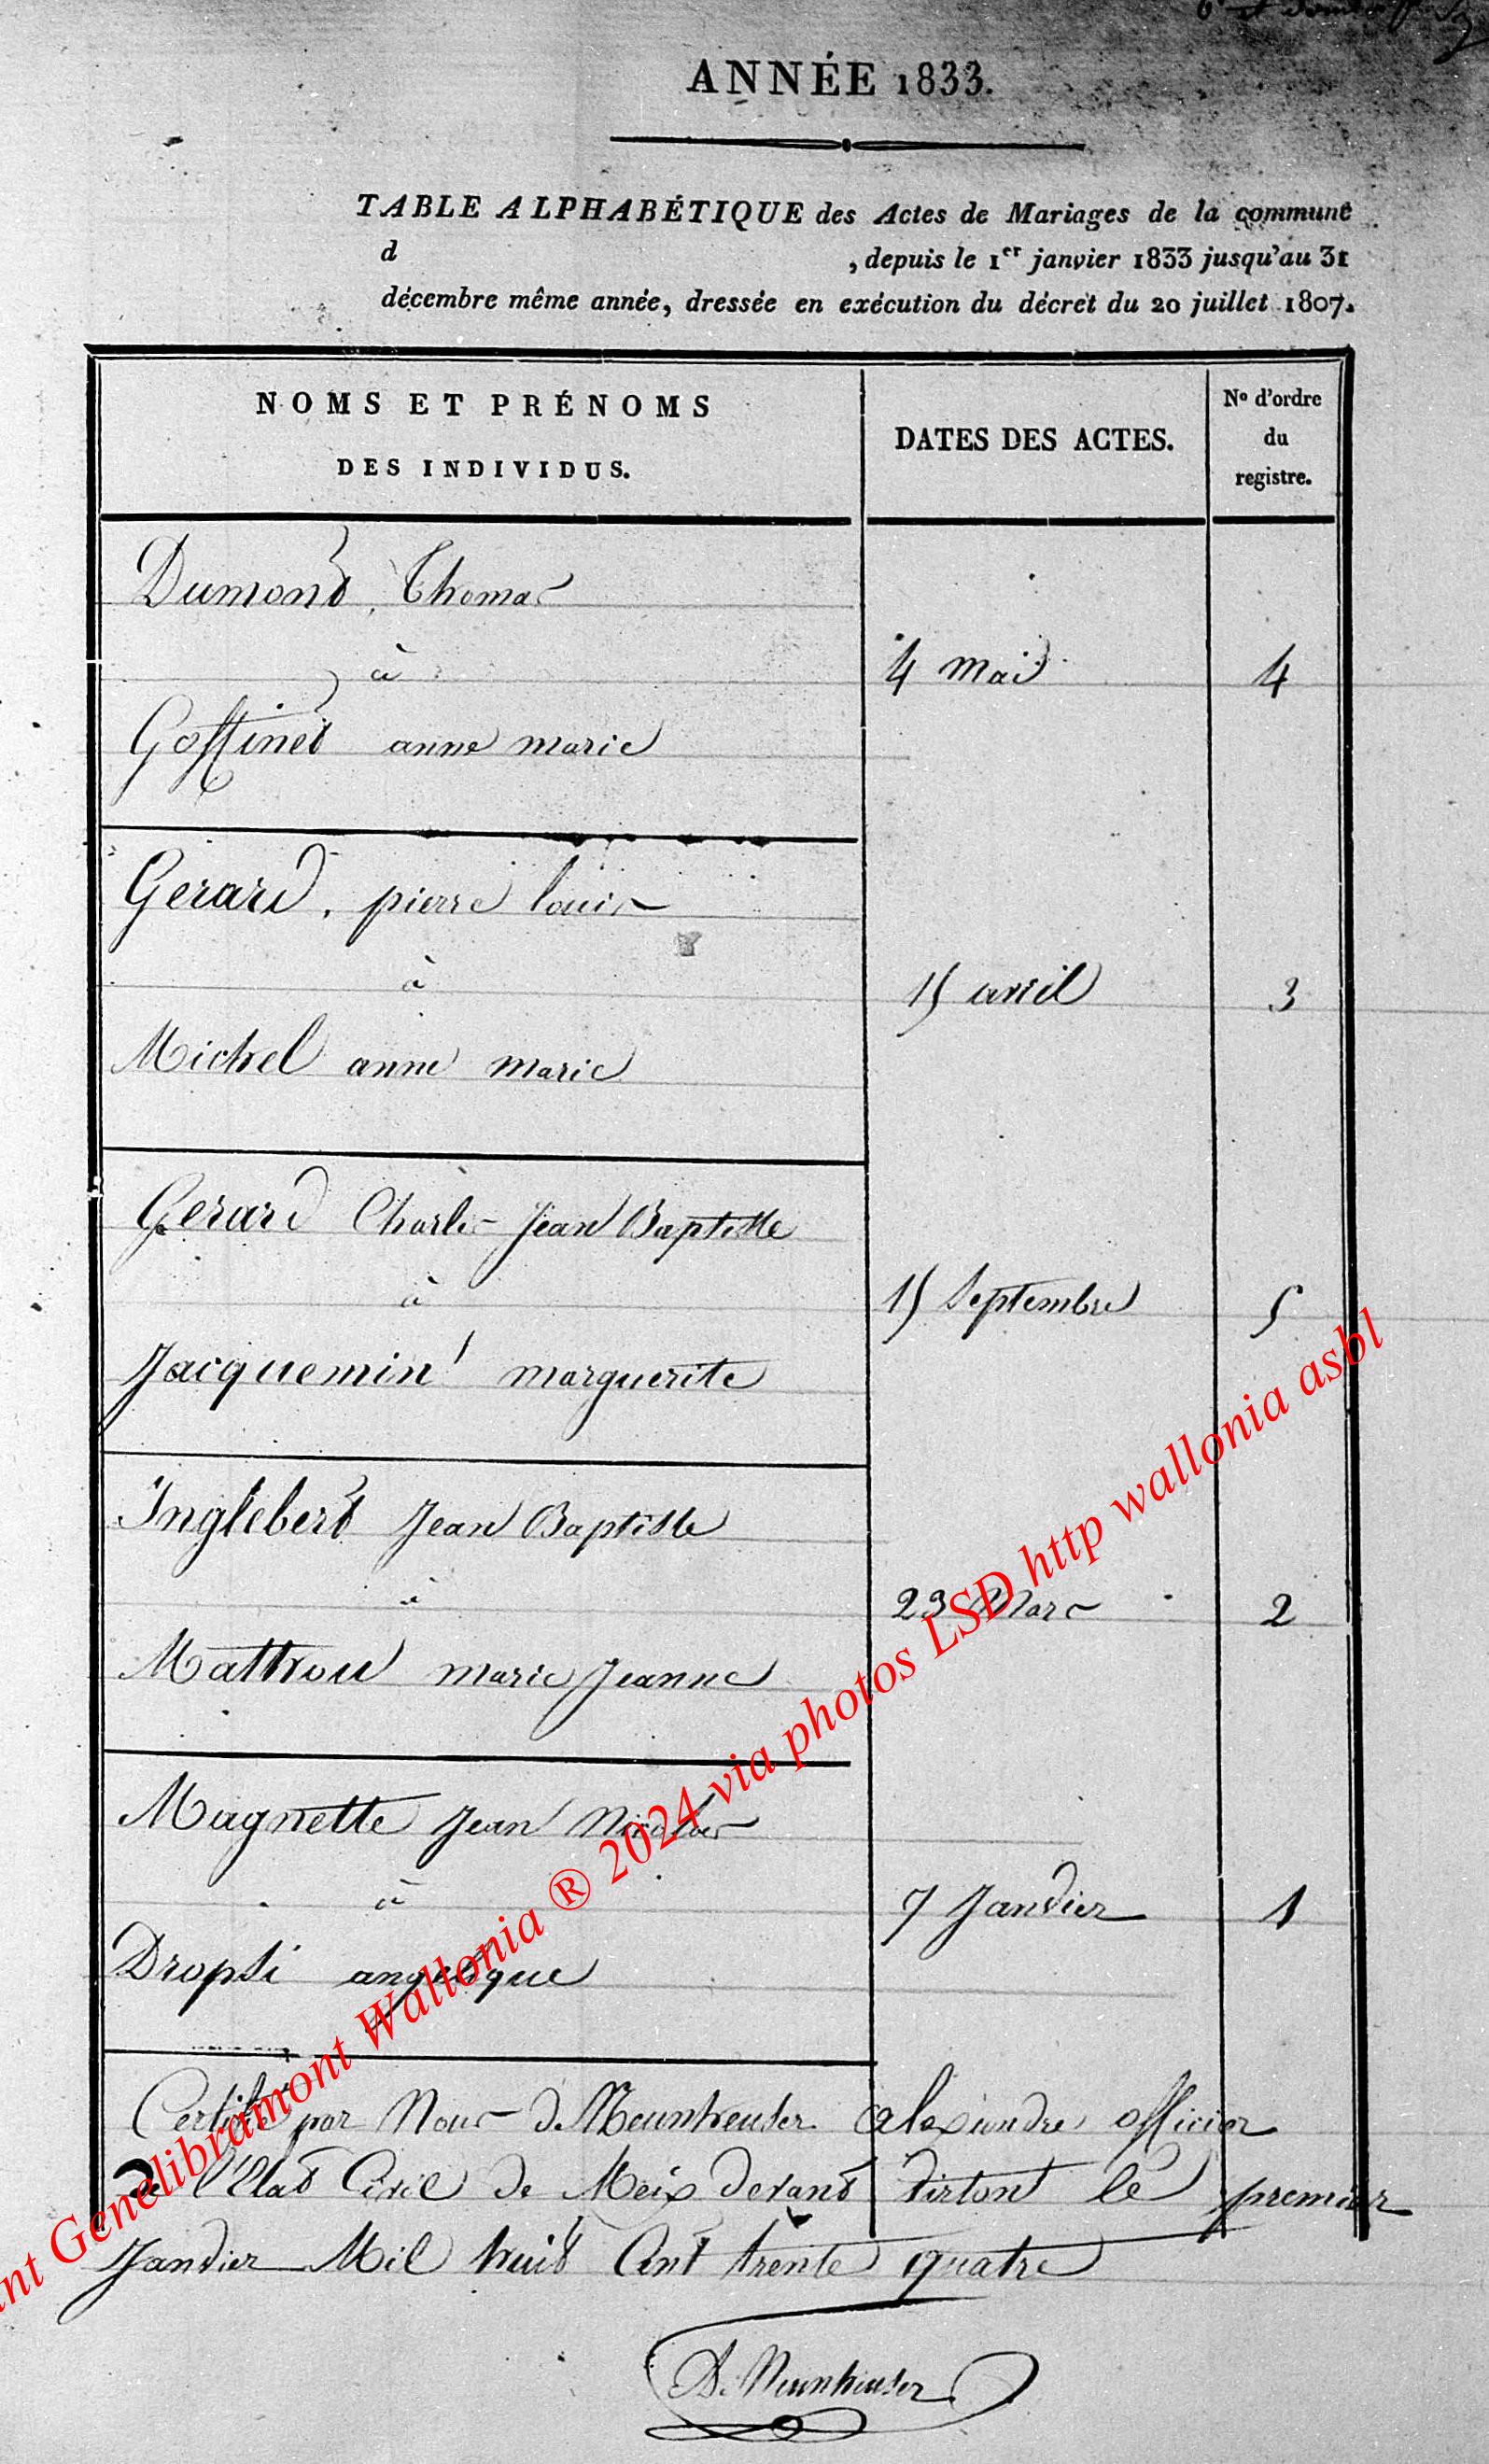 ANNÉE 1833.
TABLE ALPHABÉTIQUE des Actes de Mariages de la commune
d , depuis le 1er janvier 1833 jusqu'au 31
décembre même année, dressée en exécution du décret du 20 juillet 1807.
NOMS ET PRÉNOMS
DES INDIVIDUS.
DATES DES ACTES.
No d'ordre
du
registre.
Dumont, Thomas
à
4 mai
4
Goffinet anne marie
Gerard, pierre louis
à
15 avril
3
Michel anne marie
Gerard Charles Jean Baptiste
à
15 Septembre
5
Jacquemin marguerite
Inglebert Jean Baptiste
à
23 Mars
2
Mathou marie Jeanne
Magnette Jean Nicolas
à
7 Janvier
1
Dropsi angelique
Certifié par Nous de Meunheuser alexandre officier
de l'Etat Civil de Meix devant Virton le premier
Janvier Mil huit Cent trente quatre
Genelibramont Wallonia ® 2024 via photos LSD http wallonia asbl